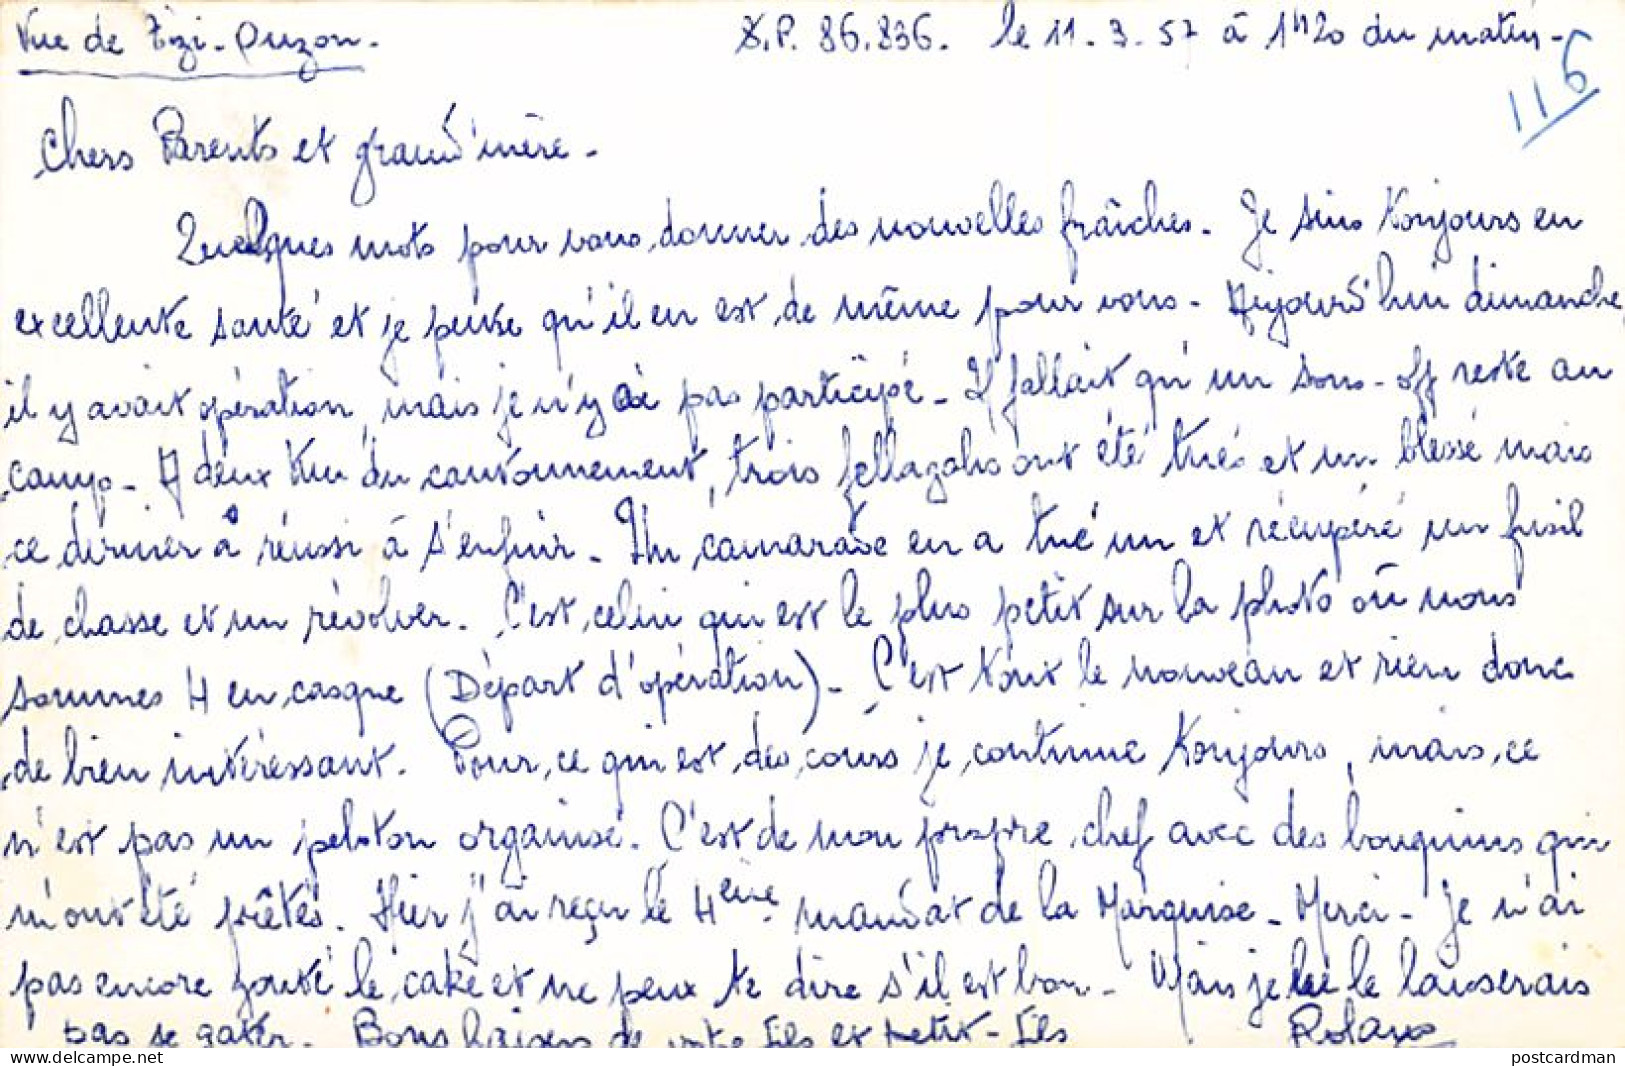 Vue de Tizi-Ouzou.
S.P. 86.836. le 11-3-57 à 1h20 du matin-
116
Chers Parents et grand'mère-
Quelques mots pour vous donner des nouvelles fraîches. Je suis toujours en
excellente santé et je pense qu'il en est de même pour vous- Aujourd'hui dimanche,
il y avait opération, mais je n'y ai pas participé- Il fallait qu'un sous-off reste au
camp- A deux km du cantonnement, trois fellagahs ont été tués et un blessé mais
ce dernier à réussi à s'enfuir- Un camarade en a tué un et récupéré un fusil
de chasse et un révolver. C'est celui qui est le plus petit sur la photo où nous
sommes 4 en casque (Départ d'opération)- C'est tout le nouveau et rien donc
de bien intéressant. Pour ce qui est des cours je continue toujours, mais ce
n'est pas un peloton organisé. C'est de mon propre chef avec des bouquins qui
m'ont été prêtés. Hier j'ai reçu le 4ème mandat de la Marquise- Merci- Je n'ai
pas encore goûté le cake et ne peux te dire s'il est bon- Mais je le laisserais
pas se gâter. Bons baisers de votre fils et petit-fils
postcardman